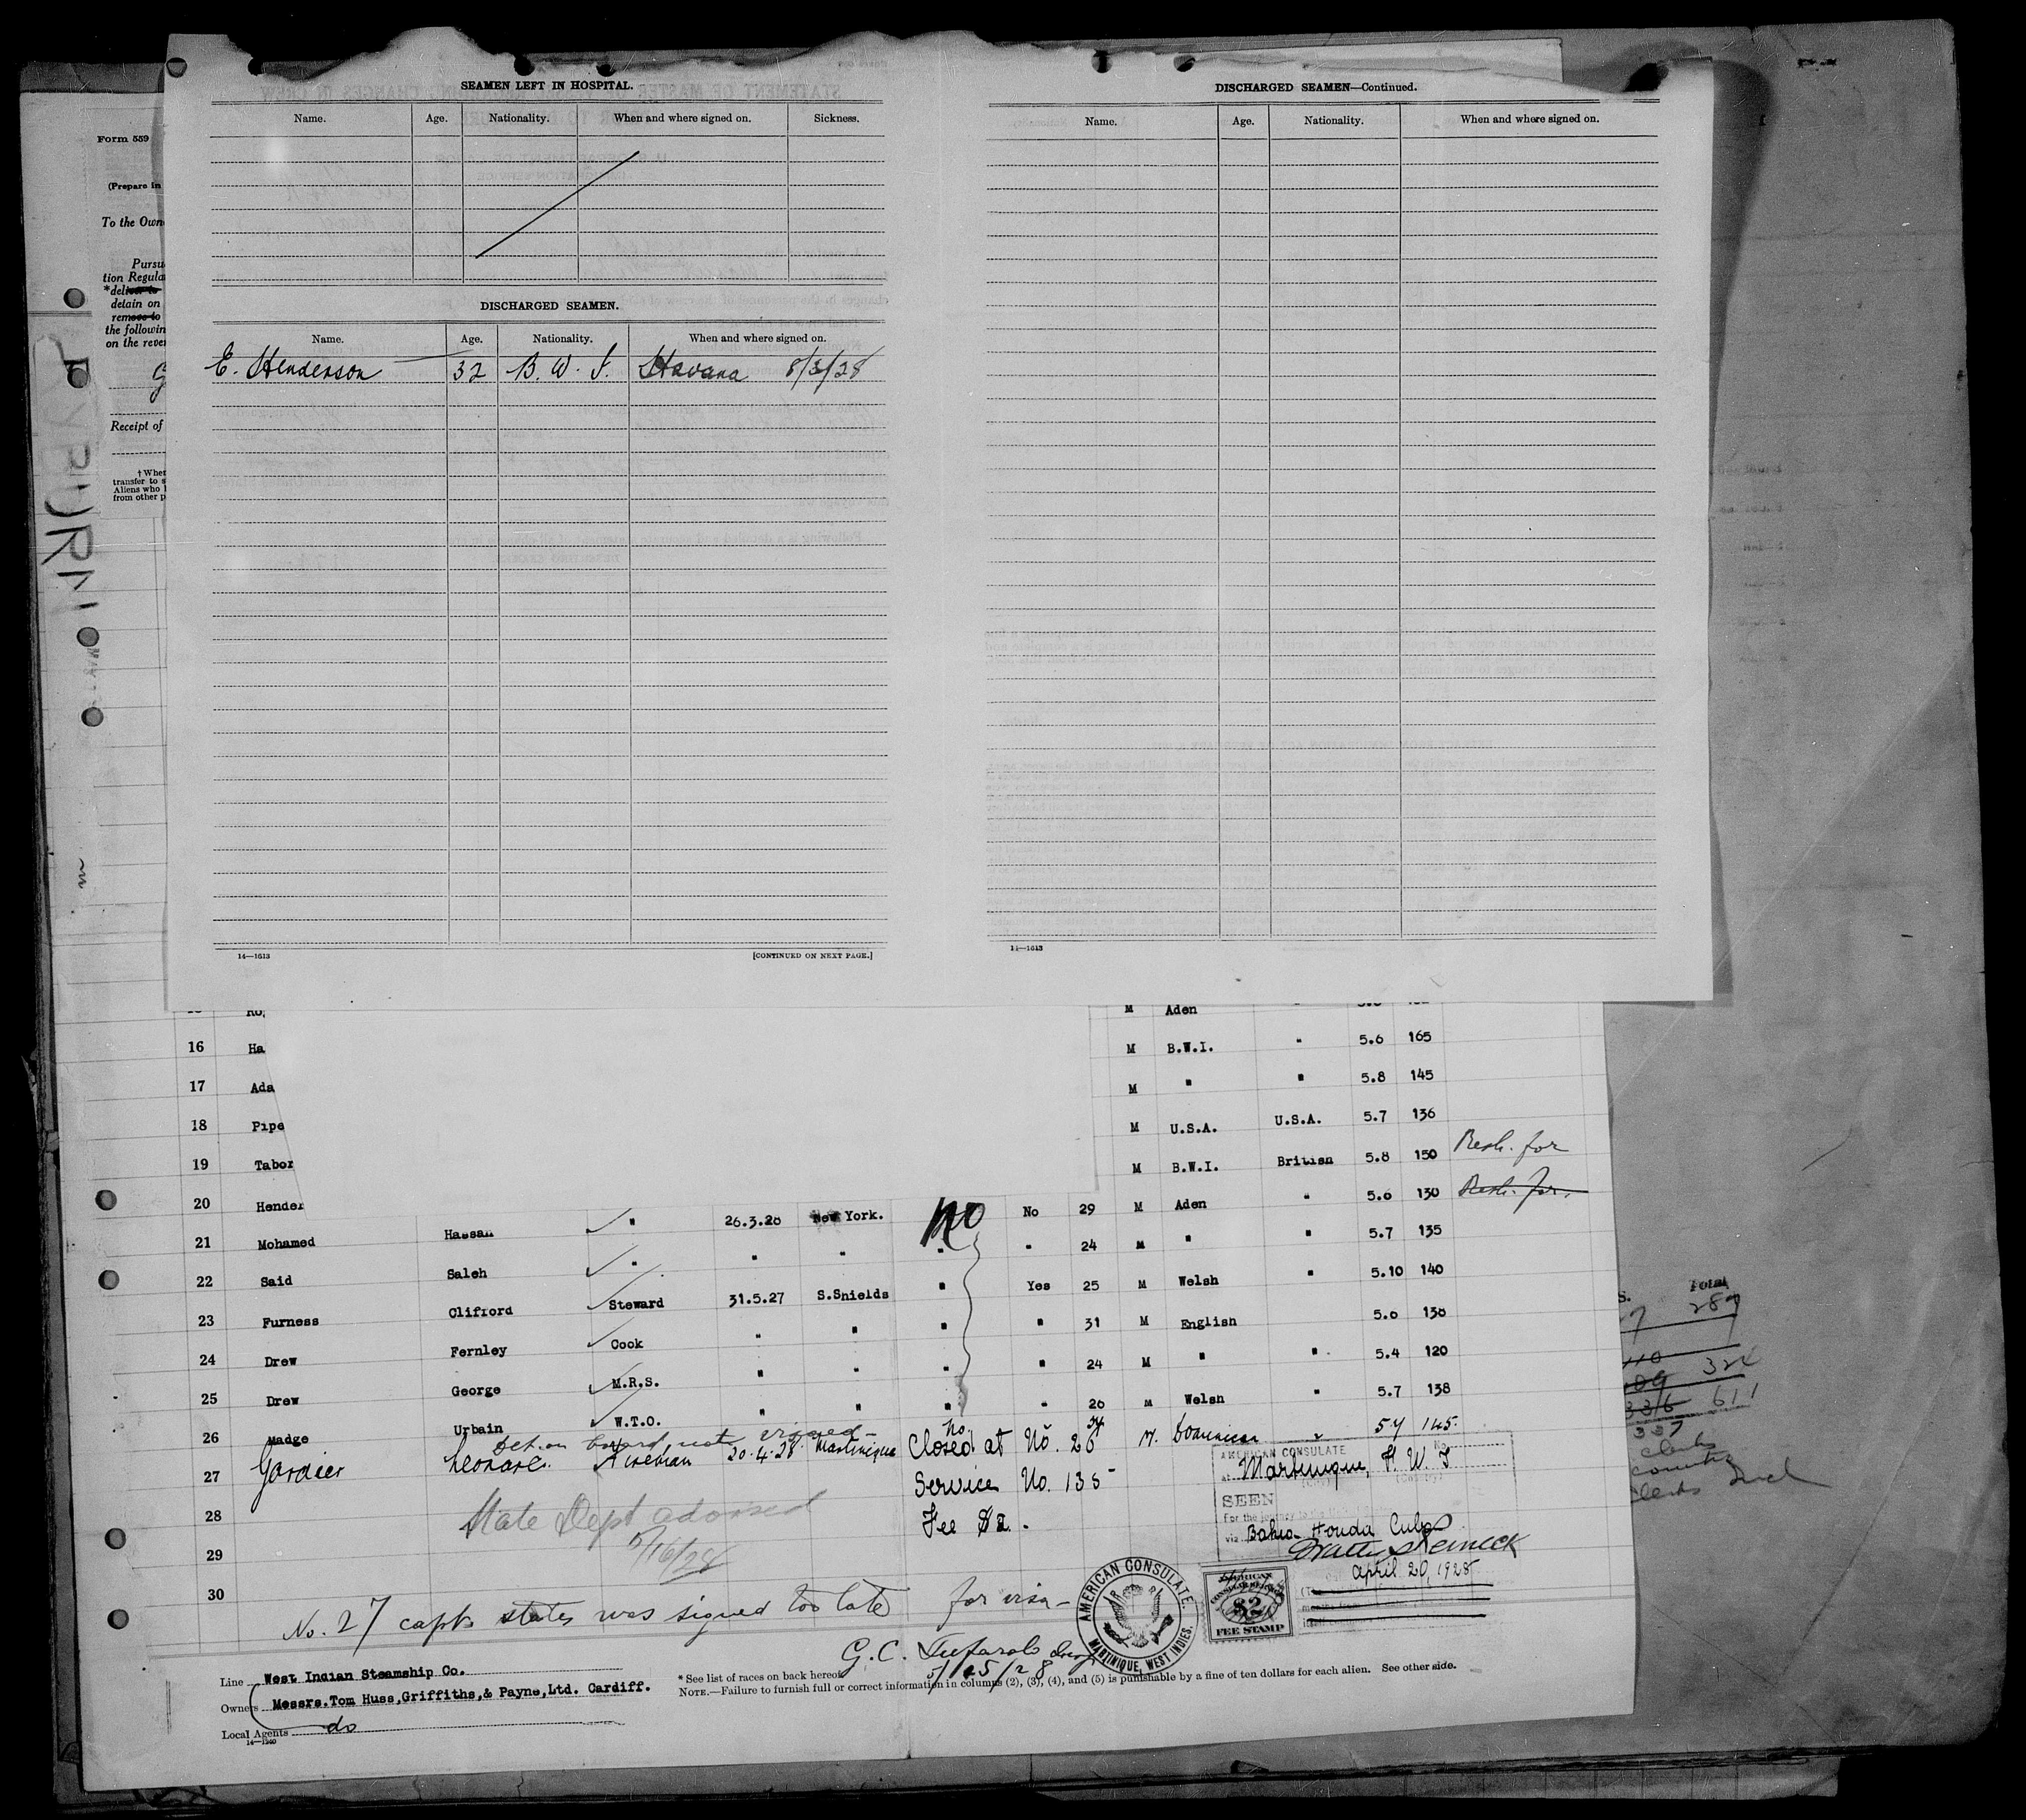 SEAMEN LEFT IN HOSPITAL.
Name. Age. Nationality. When and where signed on. Sickness.
DISCHARGED SEAMEN.
Name. Age. Nationality. When and where signed on.
E. Henderson 32 B. W. I. Havana 8/3/28
14—1613 [CONTINUED ON NEXT PAGE.]
DISCHARGED SEAMEN—Continued.
Name. Age. Nationality. When and where signed on.
14—1613
Form 559
(Prepare in
To the Own
Pursu
tion Regula
*deliver to
detain on
remove to
the followin
on the rever
Receipt of
† When
transfer to s
Aliens who
from other p
M Aden
16 Ha M B.W.I. " 5.6 165
17 Ada M " " 5.8 145
18 Pipe M U.S.A. U.S.A. 5.7 136
19 Tabor M B.W.I. British 5.8 150 Resh. for
20 Hender No 29 M Aden " 5.6 130 Resh. for.
21 Mohamed Hassan " 26.3.28 New York. No " 24 M " " 5.7 135
22 Said Saleh " " " " Yes 25 M Welsh " 5.10 140
23 Furness Clifford Steward 31.5.27 S.Shields " " 31 M English 5.6 138
24 Drew Fernley Cook " " " " 24 M " " 5.4 120
25 Drew George M.R.S. " " " " 26 M Welsh " 5.7 138
26 Madge Urbain W.T.O. " " "
on board, not signed No 24 M. Dominican " 5 4 145.
27 Gardier Leonard 20.4.28 Martinique Closed at No. 26
Service No. 135
28 State Dept advised Fee $2.
29 5/16/28
30
AMERICAN CONSULATE
at Martinique, F. W. I.
SEEN
For the journey to the
via Bahia Honda Cuba
April 20, 1928
AMERICAN CONSULATE. MARTINIQUE, WEST INDIES.
$2
FEE STAMP
No. 27 capt. states was signed too late for visa—
G.C. Insp
5/15/28
Line West Indian Steamship Co.
Owners Messrs.Tom Huss,Griffiths,& Payne,Ltd. Cardiff.
Local Agents do
14—1240
* See list of races on back hereof.
NOTE.—Failure to furnish full or correct information in columns (2), (3), (4), and (5) is punishable by a fine of ten dollars for each alien. See other side.
Total
287
324
611
337